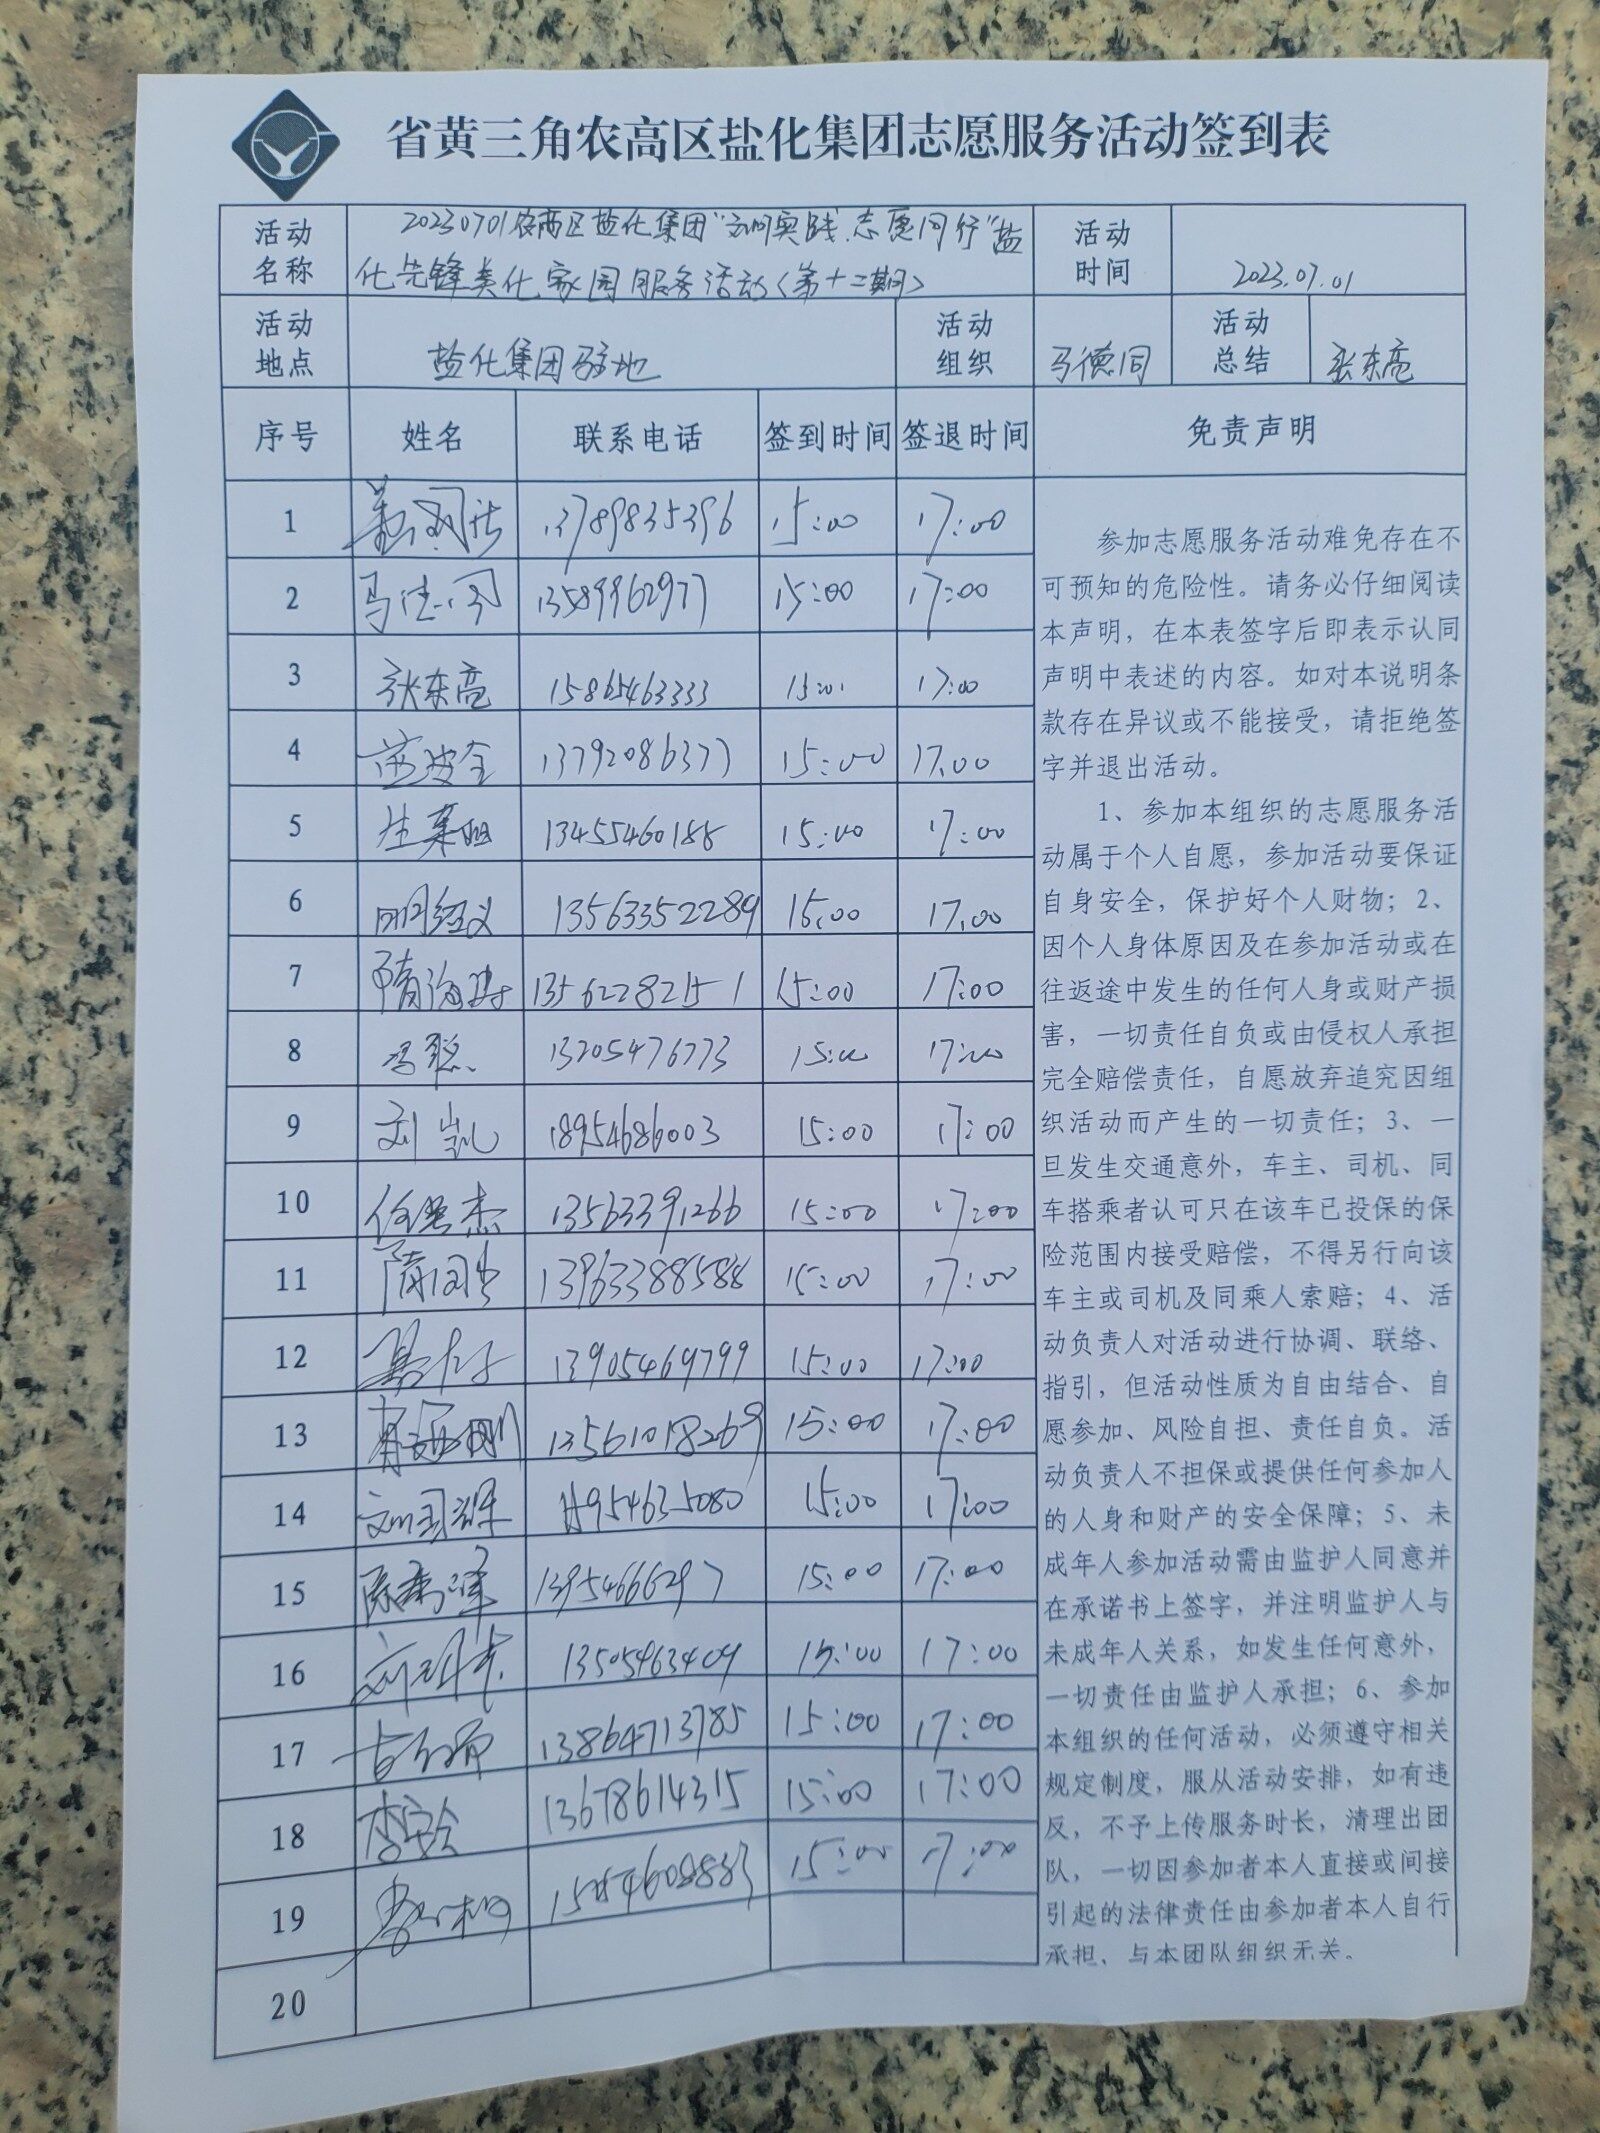 省黄三角农高区盐化集团志愿服务活动签到表
活动名称 20230701农高区盐化集团"文明实践、志愿同行"盐化先锋美化家园服务活动(第十二期) 活动时间 2023.07.01
活动地点 盐化集团驻地 活动组织 马德同 活动总结 张东亮
序号 姓名 联系电话 签到时间 签退时间 免责声明
1 13789835396 15:00 17:00
2 马德同 13589962977 15:00 17:00
3 张东亮 15865463333 15:00 17:00
4 13792086377 15:00 17.00
5 13455460188 15:00 17:00
6 明经义 13563352289 15:00 17.00
7 隋海 13562282151 15:00 17:00
8 冯聪 13205476773 15:00 17:00
9 刘凯 18954686003 15:00 17:00
10 任 杰 13563391266 15:00 17:00
11 隋 13963388588 15:00 17:00
12 13905469799 15:00 17:00
13 13561018269 15:00 17:00
14 954635080 15:00 17:00
15 13954666297 15:00 17:00
16 刘 13505463409 15:00 17:00
17 13864713785 15:00 17:00
18 李 13678614315 15:00 17:00
19 15:00 17:00
20
参加志愿服务活动难免存在不
可预知的危险性。请务必仔细阅读
本声明，在本表签字后即表示认同
声明中表述的内容。如对本说明条
款存在异议或不能接受，请拒绝签
字并退出活动。
1、参加本组织的志愿服务活
动属于个人自愿，参加活动要保证
自身安全，保护好个人财物；2、
因个人身体原因及在参加活动或在
往返途中发生的任何人身或财产损
害，一切责任自负或由侵权人承担
完全赔偿责任，自愿放弃追究因组
织活动而产生的一切责任；3、一
旦发生交通意外，车主、司机、同
车搭乘者认可只在该车已投保的保
险范围内接受赔偿，不得另行向该
车主或司机及同乘人索赔；4、活
动负责人对活动进行协调、联络、
指引，但活动性质为自由结合、自
愿参加、风险自担、责任自负。活
动负责人不担保或提供任何参加人
的人身和财产的安全保障；5、未
成年人参加活动需由监护人同意并
在承诺书上签字，并注明监护人与
未成年人关系，如发生任何意外，
一切责任由监护人承担；6、参加
本组织的任何活动，必须遵守相关
规定制度，服从活动安排，如有违
反，不予上传服务时长，清理出团
队，一切因参加者本人直接或间接
引起的法律责任由参加者本人自行
承担，与本团队组织无关。